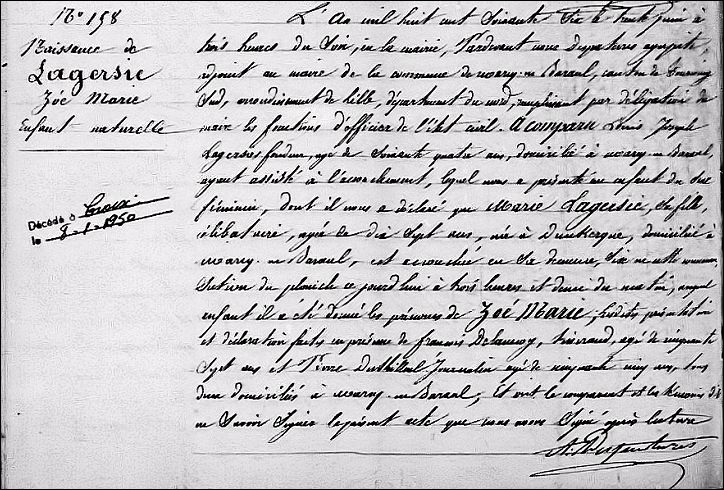 No 158
Naissance de
Lagersie
Zoé Marie
Enfant naturelle
Décédé à Croix
le 8-1-1950
L'An mil huit cent Soixante Six le trente juin à
trois heures du Soir, en la mairie, Pardevant nous Desfontaines Auguste,
adjoint au maire de la commune de Wasq. en Baroeul, canton de Tourcoing
Sud, arrondissement de Lille, département du nord, remplissant par délégation du
maire les fonctions d'officier de l'état civil. A comparu Louis Joseph
Lagersies fondeur, agé de Soixante quatre ans, domicilié à Wasq. en Baroeul,
ayant assisté à l'accouchement, lequel nous a présenté un enfant du sexe
féminin, dont il nous a déclaré que Marie Lagersie, Sa fille,
célibataire, agée de dix Sept ans, née à Dunkerque, domiciliée à
Wasq. en Baroeul, est accouchée en Sa demeure, Sise en cette commune
Section du ce jourd'hui à trois heures et demie du matin, auquel
enfant il a été donné les prénoms de Zoé Marie; lesdites présentation
et déclaration faites en présence de françois Delannoy, tisserand, agé de cinquante
Sept ans et Pierre Duthilleul Journalier agé de cinquante cinq ans, tous
deux domiciliés à Wasq. en Baroeul; Et ont le comparant et les témoins dit
ne Savoir Signer le présent acte que nous avons Signé après lecture